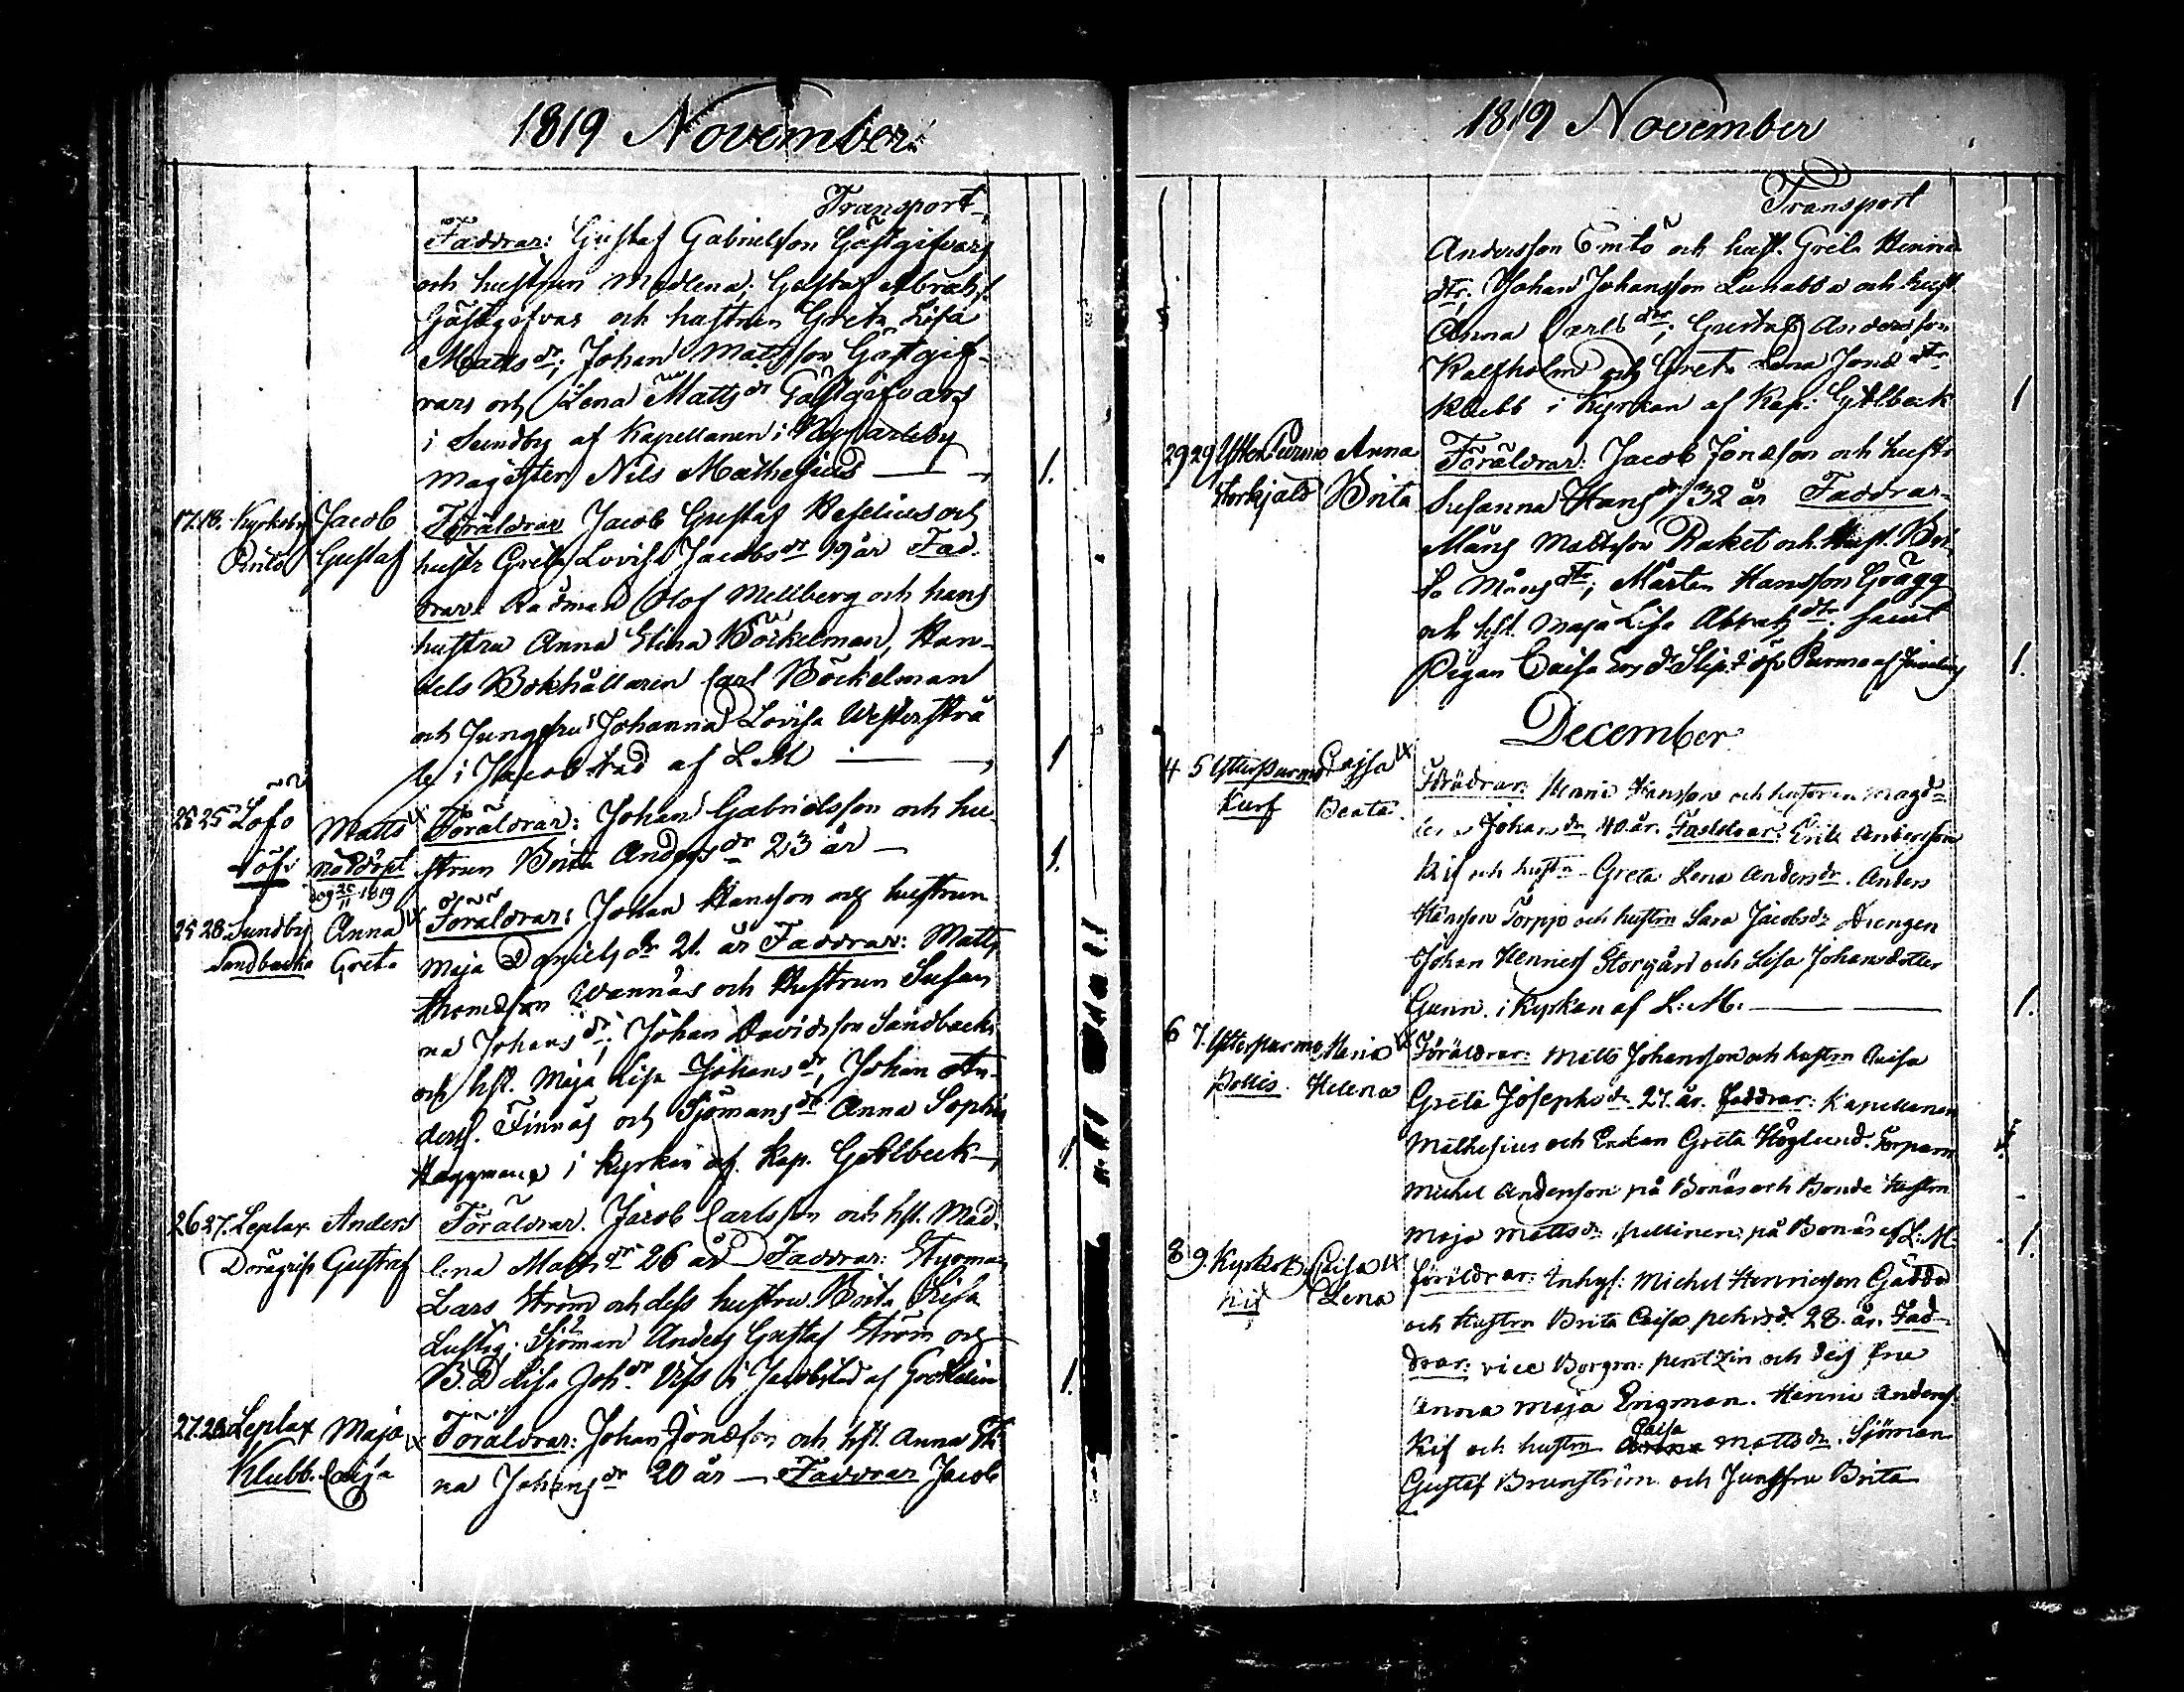 1819 November
Transport
Faddrar: Gustaf Gabrielsson Gästgifvars
och hustrun Madlena; Gustaf Abrahs.
Gästgifvas och hustrun Greta Lisa
Matts dr; Johan Mattsson Gästgif-
vars och Lena Matts dr Gästgifvars
i Sundby af Kapellanen i
magister Nils Mathesius — 1.
17. 18. Kyrkoby Jacob Föräldrar Jacob Gustaf Keselius och
Gustaf hustr Greta Lovisa Jacobs dr 19 år Fad-
drar. Rådman Olof Mellberg och hans
hustru Anna Stina Böckelman, Han-
dels Bokhållaren Carl Böckelman
och Jungfru Johanna Lovisa Westerstrå
le i Jacobstad af L.M — 1
25 Löfö Matts Föräldrar: Johan Gabrielsson och hu-
Löf: nöddöpt strun Brita Anders dr 23 år — 1.
dog 1819
25 28. Sundby Anna Föräldrar: Johan Hansson och hustrun
Sandbacka Greta Maja Daniels dr 21. år Faddrar: Matts
Thomasson Wannäs och Hustrun Susan
na Johans dr; Johan Davidsson Sandbacka
och hst. Maja Lisa Johans dr, Johan An-
derss. Finnäs och Sjömans dr Anna Sophia
Häggman i Kyrkan af Kap. Gyllbeck — 1.
26 27. Lepplax Anders Föräldrar. Jacob Carlsson och hst. Mad-
Gustaf lena Matts dr 26 år Faddrar: Styrman
Lars Ström och dess hustru Brita Lisa
Lustig; Sjöman Anders Gustaf Ström och
B.D Lisa Joh dr i Jacobstad af 1.
27. 28. Lepplax Maja Föräldrar: Johan Jonsson och hst. Anna Sti
Klubb. Caisa na Johans dr 20 år — Faddrar Jacob
1819 November
Transport
Andersson Emitö och hust. Greta Henric
dtr; Johan Johansson Lunabba och hust.
Anna Carls dtr; Gustaf Andersson
Kalfholm och Greta Lena Jons dtr
Klubb i Kyrkan af Kap: Gyllbeck 1
29 29 Ytter Purmo Anna Föräldrar: Jacob Jonsson och hustr
Brita Susanna Hans dr 32 år Faddrar
Måns Mattsson Raket och Hust. Bri-
ta Måns dtr; Mårten Hansson Grägg
och hst. Maja Lisa Abrah dtr. samt
Pigan Caisa Purmo af 1.
December
4 5 Ytterpurmo Cajsa Föräldrar: Henric Hansson och hustrun Magda-
Kurf Beata. lena Johans dr 40. år. Faddrar: Erik Andersson
Kif och hustr. Greta Lena Anders dr. Anders
Hansson Torppo och hustrn Sara Jacobs dr Drengen
Johan Henricss Storgård och Lisa Johansdotter
Gunn. i Kyrkan af L: M. — 1.
6 7. Ytterpurmo Maria Föräldrar: Matts Johansson och hustrn Caisa
Pollis. Helena Greta Josephs dr 27. år. Faddrar: Kapellanen
Mathesius och Enkan Greta Höglund. Torparn
Michel Andersson på Bonäs och Bonde Hustrn
Maja Matts dr Pellinen på Bonäs af L: M. 1.
8 9. Kyrkob. Caisa Föräldrar: Inhys: Michel Henricsson Gädda
Kif Lena och Hustrn Brita Caisa Pehrs d. 28. år. Fad-
drar: vice Borgm: Pentzin och dess fru
Anna Maja Engman. Henric Anderss.
Caisa
Kif och hustrn Matts dr. Sjöman
Gustaf Brunström och Jungfru Brita